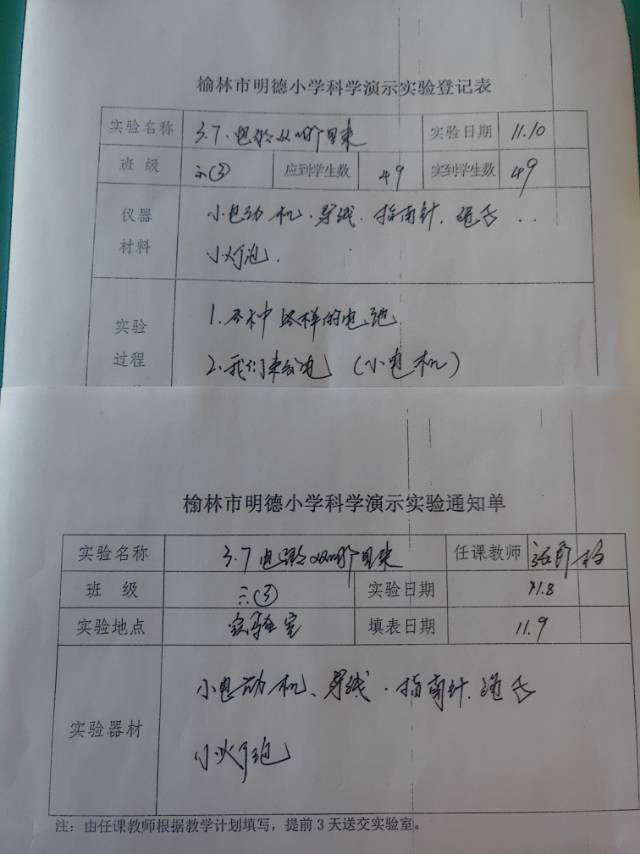 榆林市明德小学科学演示实验登记表
实验名称 3.7 电 从哪个里来 实验日期 11.10
班 级 六③ 应到学生数 49 实到学生数 49
仪器
材料
小电动机、导线、指南针、
小灯泡.
实验
过程
1.各种各样的电池
2.我们来发电 (小电机)
榆林市明德小学科学演示实验通知单
实验名称 3.7 电 从哪个里来 任课教师
班 级 六③ 实验日期 11.8
实验地点 实验室 填表日期 11.9
实验器材
小电动机、导线、指南针、
小灯泡
注：由任课教师根据教学计划填写，提前3天送交实验室。